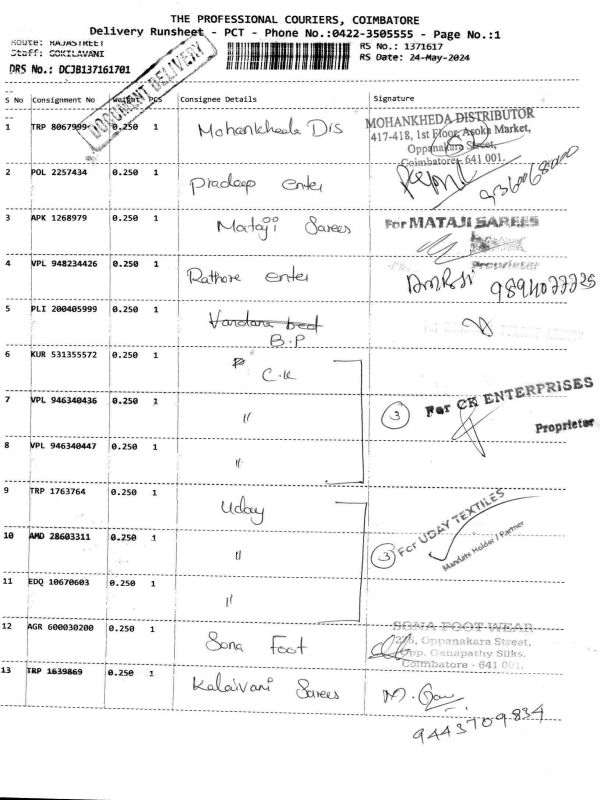 THE PROFESSIONAL COURIERS, COIMBATORE
Delivery Runsheet - PCT - Phone No.:0422-3505555 - Page No.:1
Route: RAJASTREET
Staff: GOKILAVANI
DRS No.: DCJB137161701
DOCUMENT DELIVERY
RS No.: 1371617
RS Date: 24-May-2024
S No Consignment No Weight PCS Consignee Details Signature
1 TRP 8067999 0.250 1 Mohankheda Dis
MOHANKHEDA DISTRIBUTOR
417-418, 1st Floor, Asoka Market,
Oppanakara Street,
Coimbatore - 641 001.
2 POL 2257434 0.250 1 Pradeep enter
3 APK 1268979 0.250 1 Mataji Sarees
For MATAJI SAREES
Proprietor
4 VPL 948234426 0.250 1 Rathore enter
5 PLI 200405999 0.250 1 Vardana bed
B.P
6 KUR 531355572 0.250 1 C.K
7 VPL 946340436 0.250 1 "
3 For CK ENTERPRISES
Proprietor
8 VPL 946340447 0.250 1 "
9 TRP 1763764 0.250 1 Uday
10 AMD 28603311 0.250 1 "
3 For UDAY TEXTILES
Mandate Holder / Partner
11 EDQ 10670603 0.250 1 "
12 AGR 600030200 0.250 1 Sona Foot
SONA FOOT WEAR
275, Oppanakara Street,
Opp. Ganapathy Silks,
Coimbatore - 641 001.
13 TRP 1639869 0.250 1 Kalaivani Sarees
9443709834